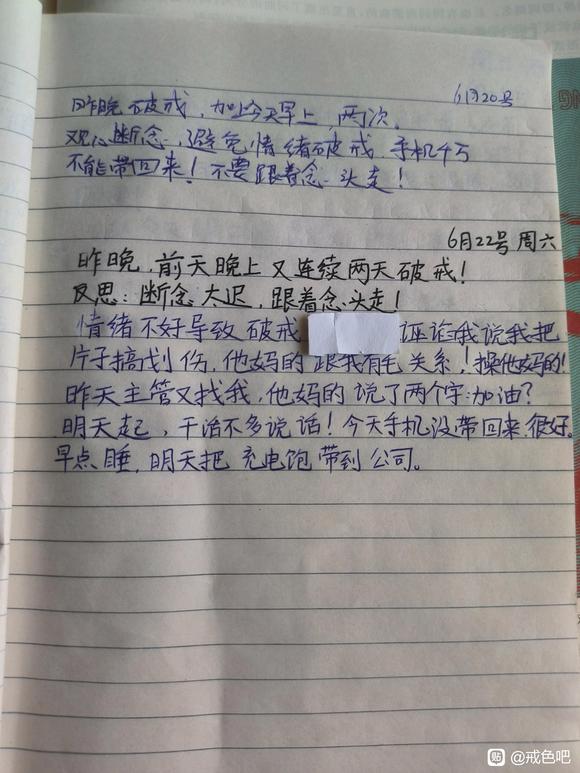 6月20号
昨晚破戒，加上今天早上，两次。
观心断念，避免情绪破戒，手机千万
不能带回来！不要跟着念头走！
6月22号 周六
昨晚，前天晚上又连续两天破戒！
反思：断念太迟，跟着念头走！
情绪不好导致破戒 诬谄我说我把
片子搞划伤，他妈的跟我有毛关系！操他妈的!
昨天主管又找我，他妈的说了两个字:加油？
明天起，干活不多说话！今天手机没带回来,很好。
早点睡，明天把充电饱带到公司。
贴 @戒色吧